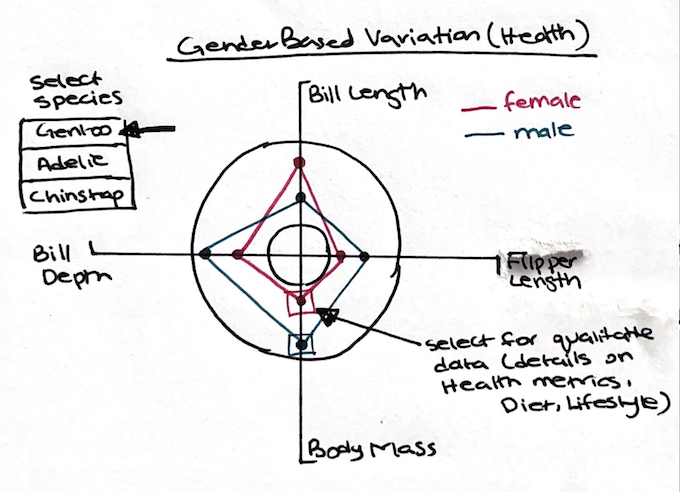 Gender Based Variation (Health)
Select
species
Gentoo
Adelie
Chinstrap
Bill Length
female
male
Bill
Depth
Flipper
Length
select for qualitative
data (details on
Health metrics,
Diet, Lifestyle)
Body Mass